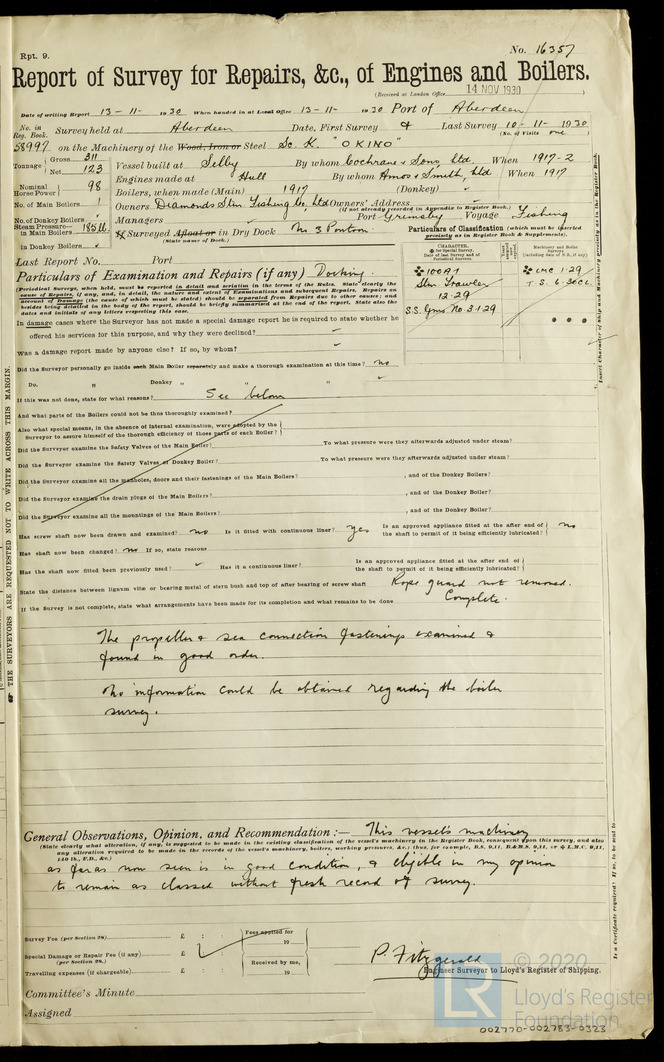 Rpt. 9.
No. 16357
Report of Survey for Repairs, &c., of Engines and Boilers.
(Received at London Office 14 NOV 1930)
Date of writing Report 13-11- 1930 When handed in at Local Office 13-11- 1930 Port of Aberdeen
No. in Reg. Book. Survey held at Aberdeen Date, First Survey & Last Survey 10-11-1930
(No. of Visits one)
58997 on the Machinery of the Wood, Iron or Steel Sc. K. "OKINO"
Tonnage { Gross 311 Net 123
Vessel built at Selby By whom Cochrane & Sons, Ltd. When 1917-2
Engines made at Hull By whom Amos & Smith, Ltd When 1917
Nominal Horse Power } 98
Boilers, when made (Main) 1917 (Donkey) ✓
No. of Main Boilers 1
Owners Diamonds Stm Fishing Co., Ltd Owners' Address
(if not already recorded in Appendix to Register Book.)
No. of Donkey Boilers
Managers Port Grimsby Voyage Fishing
Steam Pressure— in Main Boilers 185 lb.
in Donkey Boilers
If Surveyed Afloat or in Dry Dock No 3 Ponton.
(State name of Dock.)
Particulars of Classification (which must be inserted precisely as in Register Book & Supplements).
CHARACTER. ✠ for Special Survey. Date of last Survey and of Periodical Surveys.
Machinery and Boiler Surveys (including date of N.B., if any)
✠ 100A1
Stm Trawler
12.29
S.S. Gms No 3-1.29
✠ LMC 1.29
T.S. 6.30CL
Last Report No. Port
Particulars of Examination and Repairs (if any) Docking.
(Periodical Surveys, when held, must be reported in detail and seriatim in the terms of the Rules. State clearly the
cause of Repairs, if any, and, in detail, the nature and extent of Examinations and subsequent Repairs. Repairs on
account of Damage (the cause of which must be stated) should be separated from Repairs due to other causes; and
besides being detailed in the body of the report, should be briefly summarised at the end of the report. State also the
dates and initials of any letters respecting this case.
In damage cases where the Surveyor has not made a special damage report he is required to state whether he
offered his services for this purpose, and why they were declined? ✓
Was a damage report made by anyone else? If so, by whom? ✓
Did the Surveyor personally go inside each Main Boiler separately and make a thorough examination at this time? no
Do. " Donkey " " " ✓
If this was not done, state for what reasons? See below
And what parts of the Boilers could not be thus thoroughly examined?
Also what special means, in the absence of internal examination, were adopted by the
Surveyor to assure himself of the thorough efficiency of those parts of each Boiler?
Did the Surveyor examine the Safety Valves of the Main Boiler? To what pressure were they afterwards adjusted under steam?
Did the Surveyor examine the Safety Valves of Donkey Boiler? To what pressure were they afterwards adjusted under steam?
Did the Surveyor examine all the manholes, doors and their fastenings of the Main Boilers? , and of the Donkey Boilers?
Did the Surveyor examine the drain plugs of the Main Boilers? , and of the Donkey Boiler?
Did the Surveyor examine all the mountings of the Main Boilers? , and of the Donkey Boiler?
Has screw shaft now been drawn and examined? no Is it fitted with continuous liner? yes Is an approved appliance fitted at the after end of the shaft to permit of it being efficiently lubricated? no
Has shaft now been changed? no If so, state reasons
Has the shaft now fitted been previously used? ✓ Has it a continuous liner? Is an approved appliance fitted at the after end of the shaft to permit of it being efficiently lubricated?
State the distance between lignum vitæ or bearing metal of stern bush and top of after bearing of screw shaft Rope guard not removed.
If the Survey is not complete, state what arrangements have been made for its completion and what remains to be done Complete.
The propeller & sea connection fastenings examined &
found in good order.
No information could be obtained regarding the boiler
survey.
General Observations, Opinion, and Recommendation :— This vessel's machinery
(State clearly what alteration, if any, is suggested to be made in the existing classification of the vessel's machinery in the Register Book, consequent upon this survey, and also
any alteration required to be made in the records of the vessel's machinery, boilers, working pressures, &c.; thus, for example, B.S. 9,11, B.&M.S. 9,11, or ✠ L.M.C. 9,11,
140 lb., F.D., &c.)
as far as now seen is in good condition, & eligible in my opinion
to remain as classed without fresh record of survey.
Survey Fee (per Section 28) £ : :
Fees applied for 19
Special Damage or Repair Fee (if any) (per Section 28.) £ : :
Received by me, 19
Travelling expenses (if chargeable) £ : :
P. Fitzgerald
Engineer Surveyor to Lloyd's Register of Shipping.
Committee's Minute
Assigned
THE SURVEYORS ARE REQUESTED NOT TO WRITE ACROSS THIS MARGIN.
Insert Character of Ship and Machinery precisely as in the Register Book.
Is a Certificate required? If so, to be sent to
© 2020
LR
Lloyd's Register
Foundation
002770-002783-0323